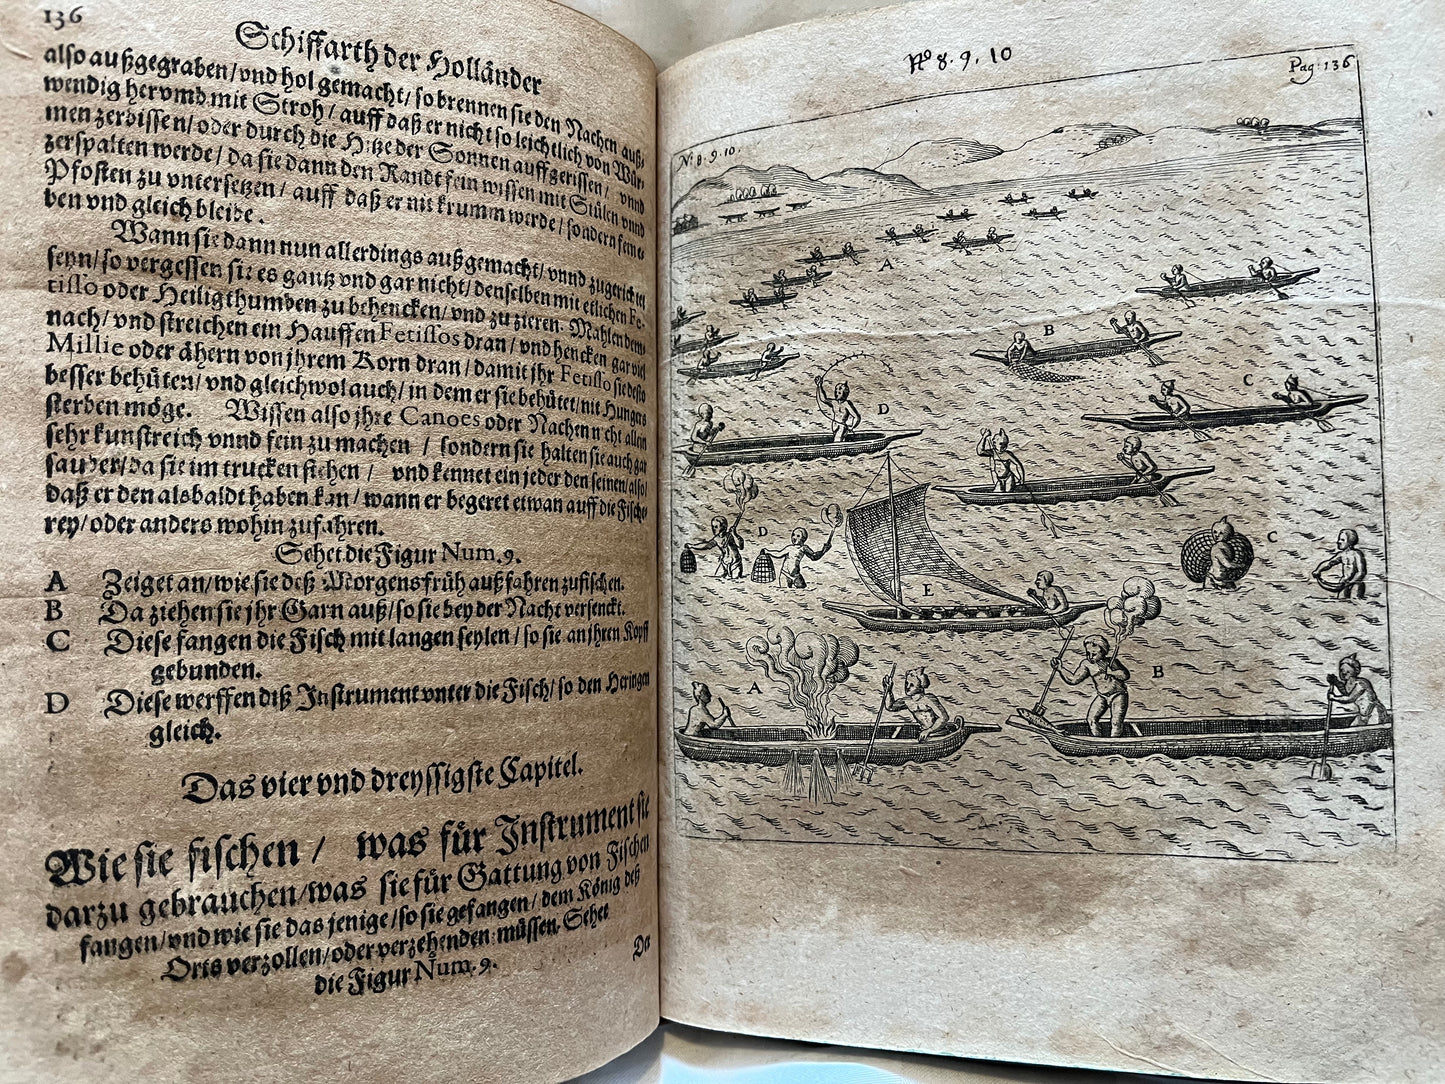 136
Schiffarth der Holländer
also außgegraben/vnd hol gemacht/so brennen sie den Nachen auß-
wendig heromb mit Stroh/auff daß er nicht so leichtlich von Wür-
men zerbissen/oder durch die Hitze der Sonnen auffgerissen/vnnd
zerspalten werde/da sie dann den Randt fein wissen mit Stülen vnnd
Pfosten zu vntersetzen/auff daß er nit krumm werde/sondern fein e-
ben vnd gleich bleibe.
Wann sie dann nun allerdings außgemacht/vnnd zugerichtet
seyn/so vergessen sie es gantz vnd gar nicht/denselben mit etlichen Fe-
tisso oder Heiligthumben zu behencken/vnd zu zieren. Mahlen dem-
nach/vnd streichen ein Hauffen Fetissos dran/vnd hencken gar viel
Millie oder ähern von jhrem Korn dran/damit jhr Fetisso sie desto
besser behüten/vnd gleichwol auch/in dem er sie behütet/nit Hungers
sterben möge. Wissen also jhre Canoes oder Nachen nicht allein
sehr kunstreich vnnd fein zu machen / sondern sie halten sie auch gar
sauber/da sie im trucken stehen / vnd kennet ein jeder den seinen/also/
daß er den alsbaldt haben kan/wann er begeret etwan auff die Fische-
rey/oder anders wohin zufahren.
Sehet die Figur Num. 9.
A Zeiget an/wie sie deß Morgens früh außfahren zufischen.
B Da ziehen sie jhr Garn auß/so sie bey der Nacht versenckt.
C Diese fangen die Fisch mit langen seylen/so sie an jhren Kopff
gebunden.
D Diese werffen diß Instrument vnter die Fisch/so den Heringen
gleich.
Das vier vnd dreyssigste Capitel.
Wie sie fischen / was für Instrument sie
darzu gebrauchen/was sie für Gattung von Fischen
fangen/vnd wie sie das jenige/so sie gefangen/dem König deß
Orts verzollen/oder verzehenden müssen. Sehet
die Figur Num. 9.
Der
No 8. 9. 10
Pag: 136
No 8. 9. 10.
A
B
C
D
D
C
E
A
B